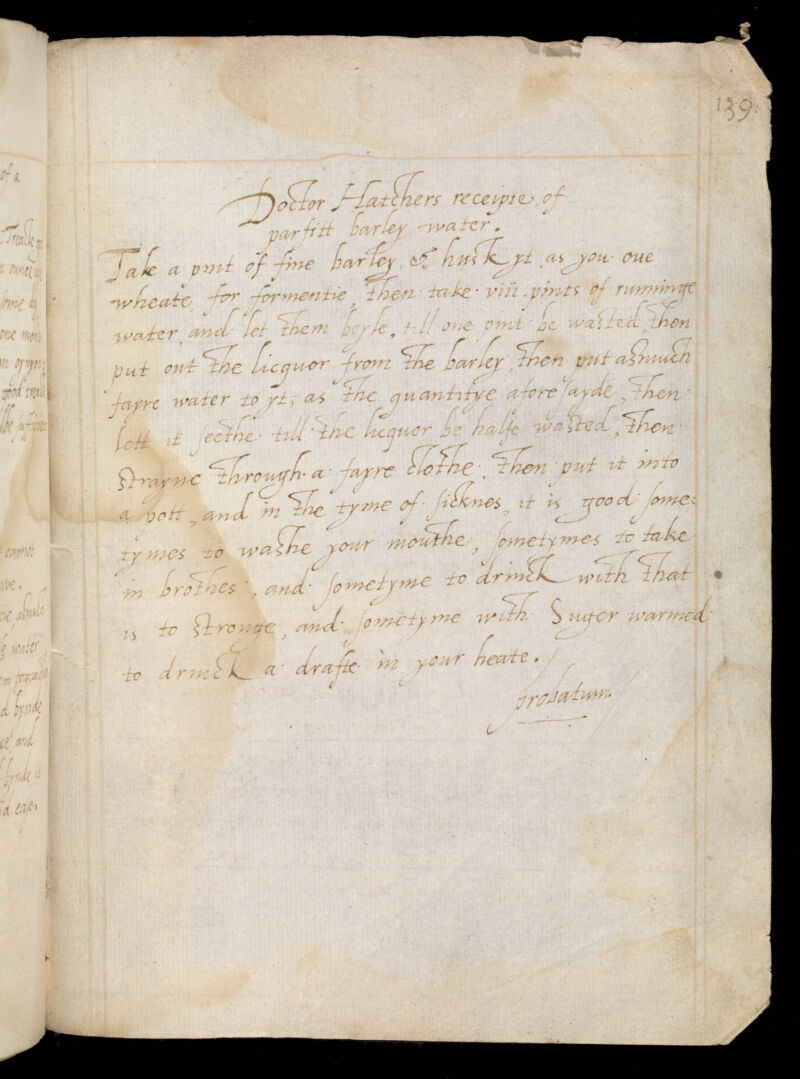 139
Doctor Hatchers receipte of
parfitt barley water.
Take a pint of fine barley & husk yt as you oue
wheate for formentie, then take viii pints of runninge
water and let them boyle, till one pint be wasted, then
put out the licquor from the barley, then put asmuch
fayre water to yt, as the quantitye aforesayde, then
lett it seethe till the licquor be halfe wasted, then
strayne through a fayre clothe, then put it into
a pott, and in the tyme of sicknes, it is good some:
tymes to washe your mouthe, sometymes to take
in brothes, and sometyme to drinck with that
is to stronge, and sometyme with Suger warmed
to drinck a drafte in your heate./
probatum/
of a
cannot
asmuch
water
bynde
and
bynde it
ease.